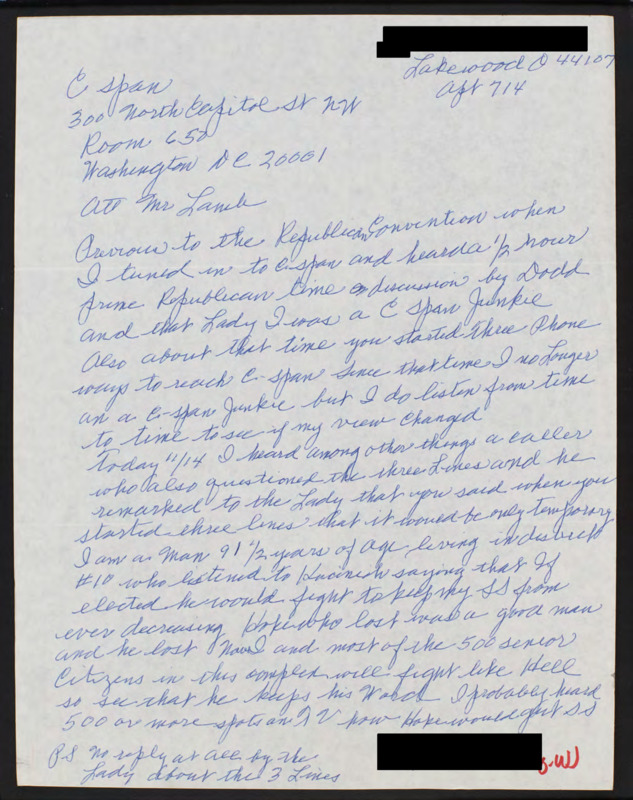 Lakewood O 44107
Apt 714
C span
300 North Capitol St NW
Room 650
Washington DC 20001
Att Mr Lamb
Previous to the Republican Convention when
I tuned in to C-span and heard a 1/2 hour
prime Republican time on discussion by Dodd
and that Lady I was a C span Junkie
Also about that time you started three Phone
ways to reach C-span Since that time I no Longer
am a C-span Junkie but I do listen from time
to time to see if my view changed
Today 11/14 I heard among other things a caller
who also questioned the three Lines and he
remarked to the Lady that you said when you
started three lines that it would be only temporary
I am a Man 91 1/2 years of age living in district
#10 who listened to Kucinich saying that If
elected he would fight to keep my SS from
ever decreasing Hoke who lost was a good man
and he lost Now I and most of the 500 senior
Citizens in this complex will fight like Hell
to see that he keeps his Word I probably heard
500 or more spots on TV how Hoke would gut SS
PS No reply at all by the
Lady about the 3 Lines